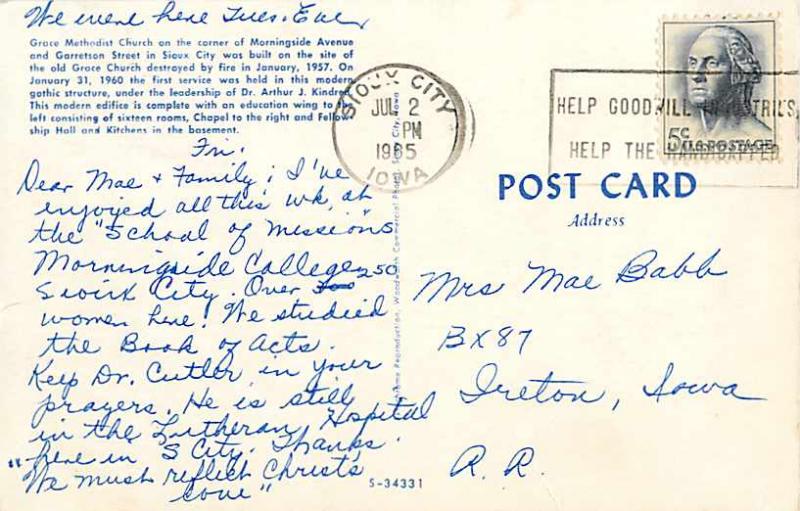 We were here Tues. Eve,
Grace Methodist Church on the corner of Morningside Avenue
and Garretson Street in Sioux City was built on the site of
the old Grace Church destroyed by fire in January, 1957. On
January 31, 1960 the first service was held in this modern
gothic structure, under the leadership of Dr. Arthur J. Kindred.
This modern edifice is complete with an education wing to the
left consisting of sixteen rooms, Chapel to the right and Fellow-
ship Hall and Kitchens in the basement.
Fri.
Dear Mae & Family; I've
enjoyed all this wk, at
the "School of Missions"
Morningside College
Sioux City. Over 250
women here. We studied
the Book of Acts.
Keep Dr. Cutler in your
prayers. He is still
in the Lutheran Hospital
here in S City. Thanks.
"We must reflect Christ's
love"
S-34331
SIOUX CITY
JUL 2
PM
1965
IOWA
HELP GOODWILL INDUSTRIES
HELP THE HANDICAPPED
5¢ U.S. POSTAGE
POST CARD
Address
Mrs Mae Babb
BX 87
Ireton, Iowa
R. R.